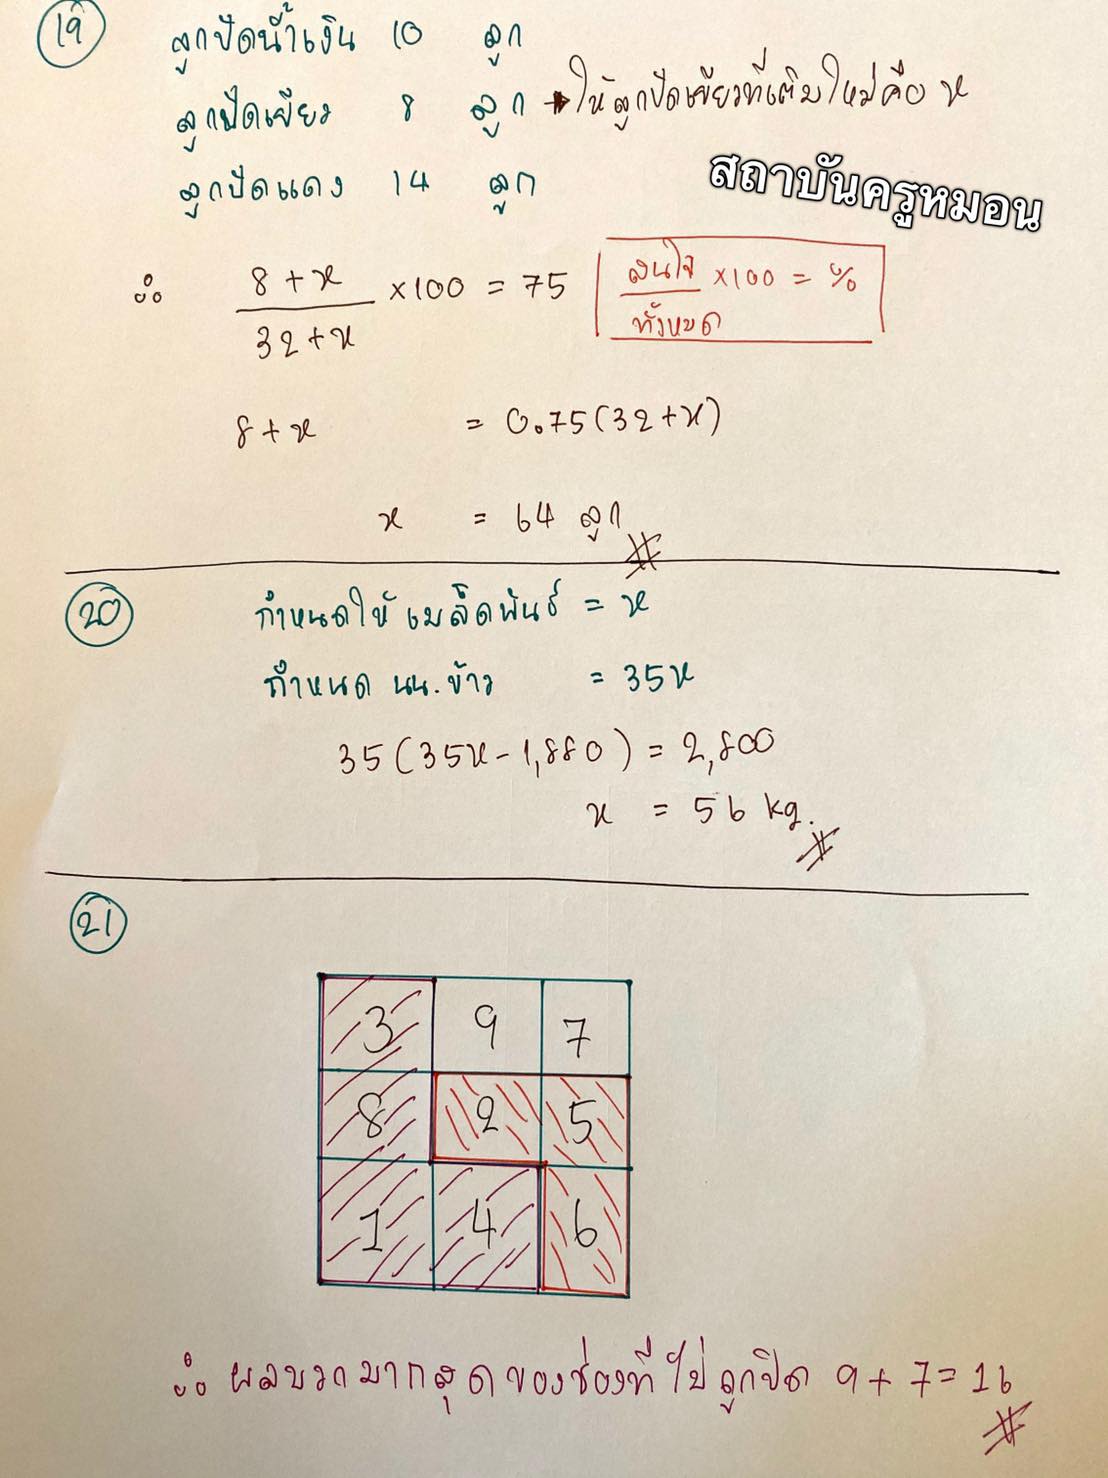 19 ลูกปัดน้ำเงิน 10 ลูก
ลูกปัดเขียว 8 ลูก → ให้ลูกปัดเขียวที่เติมใหม่คือ x
ลูกปัดแดง 14 ลูก
สถาบันครูหมอน
∴ (8 + x)/(32 + x) × 100 = 75
สนใจ/ทั้งหมด × 100 = %
8 + x = 0.75(32 + x)
x = 64 ลูก #
20 กำหนดให้ เมล็ดพันธุ์ = x
กำหนด นน.ข้าว = 35x
35(35x - 1,880) = 2,800
x = 56 kg. #
21
3 9 7
8 2 5
1 4 6
∴ ผลบวกมากสุดของช่องที่ไม่ถูกปิด 9 + 7 = 16 #